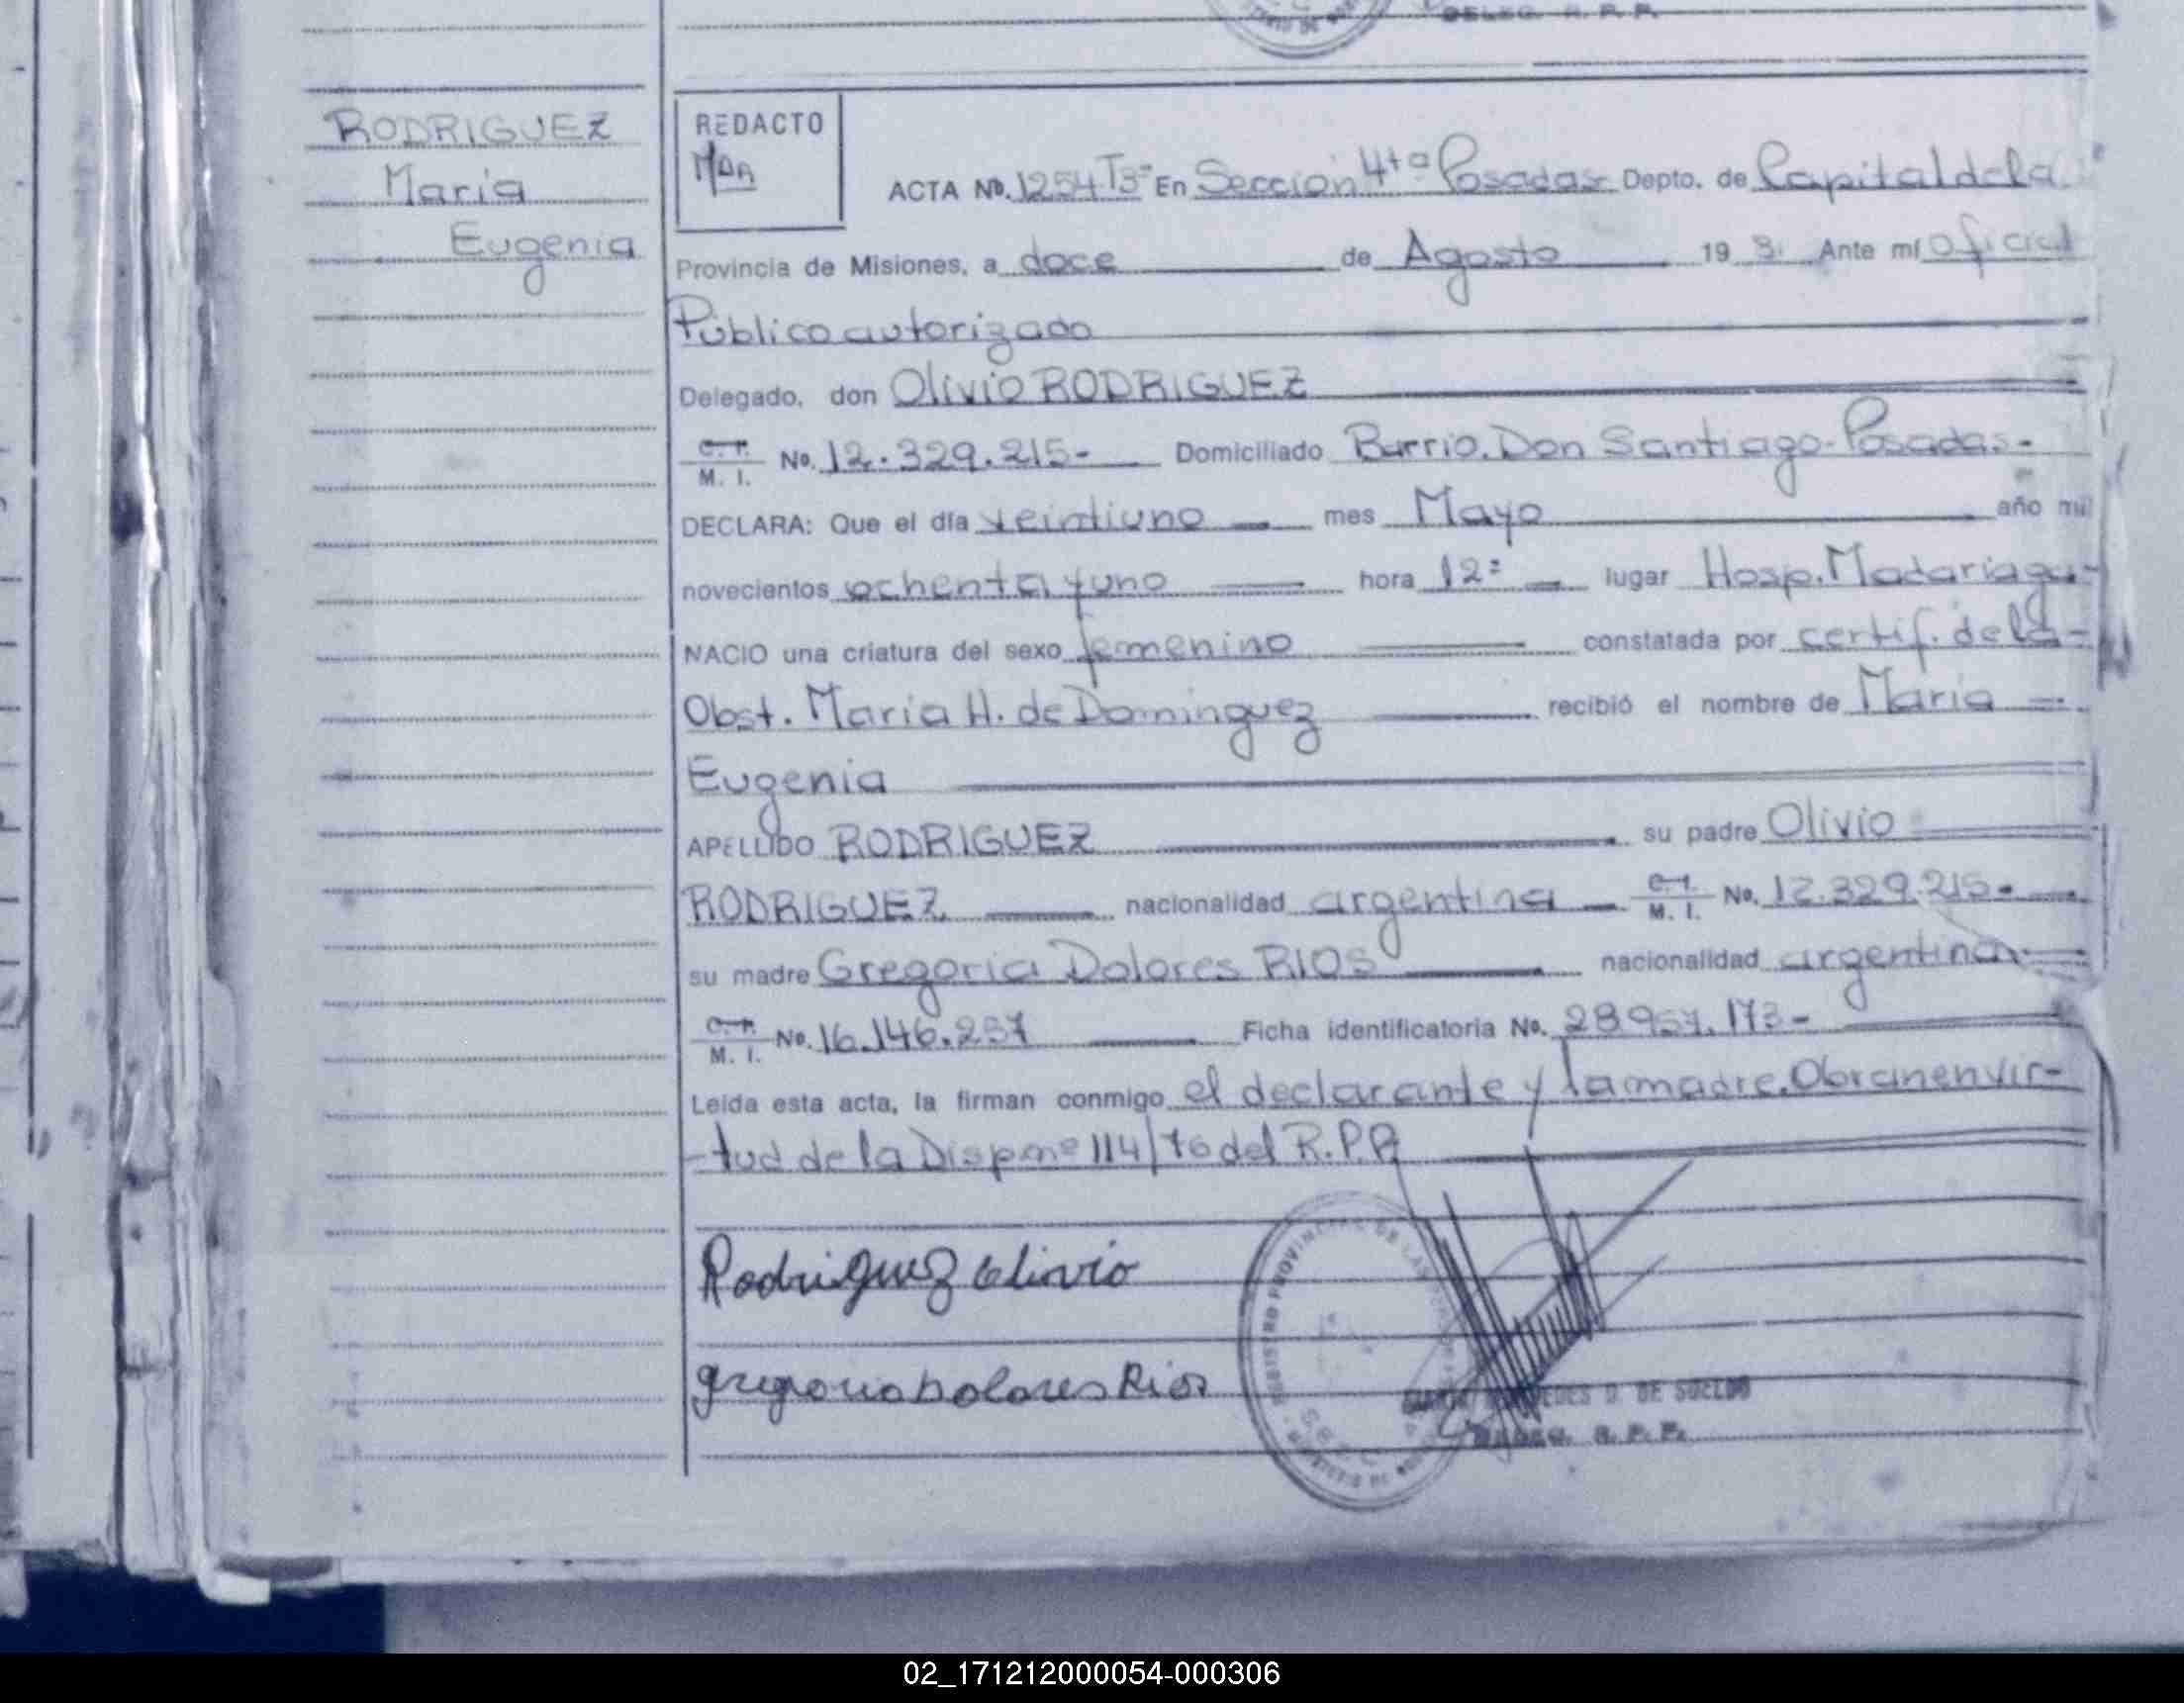 DELEG. R. P. P.
RODRIGUEZ
María
Eugenia
REDACTO
ACTA Nº. 1254 T3º En Sección 4ta Posadas Depto. de Capital de la
Provincia de Misiones, a doce de Agosto 19 81 Ante mí Oficial
Público autorizado
Delegado, don Olivio RODRIGUEZ
C. I. M. I. No. 12.329.215- Domiciliado Barrio. Don Santiago-Posadas-
DECLARA: Que el día veintiuno mes Mayo año mil
novecientos ochenta y uno hora 12= lugar Hosp. Madariaga-
NACIO una criatura del sexo femenino constatada por certif. de la-
Obst. María H. de Dominguez recibió el nombre de María
Eugenia
APELLIDO RODRIGUEZ su padre Olivio
RODRIGUEZ nacionalidad argentina C. I. M. I. No. 12.329.215-
su madre Gregoria Dolores RIOS nacionalidad argentina
C. I. M. I. No. 16.146.257 Ficha identificatoria No. 28.957.173-
Leida esta acta, la firman conmigo el declarante y la madre. Obran en vir-
-tud de la Disp. nº 114/76 del R.P.P
Rodriguez Olivio
gregoria Dolores Rios
REGISTRO PROVINCIAL DE LAS
D. DE SUELDO
R. P. P.
02_171212000054-000306